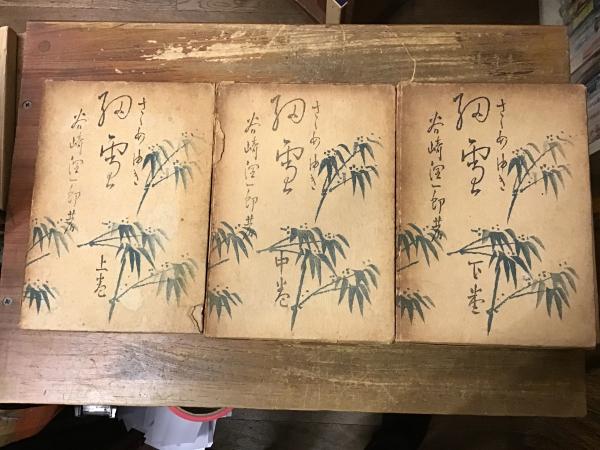 細雪
さゝめゆき
谷崎潤一郎著
上巻
細雪
さゝめゆき
谷崎潤一郎著
中巻
細雪
さゝめゆき
谷崎潤一郎著
下巻